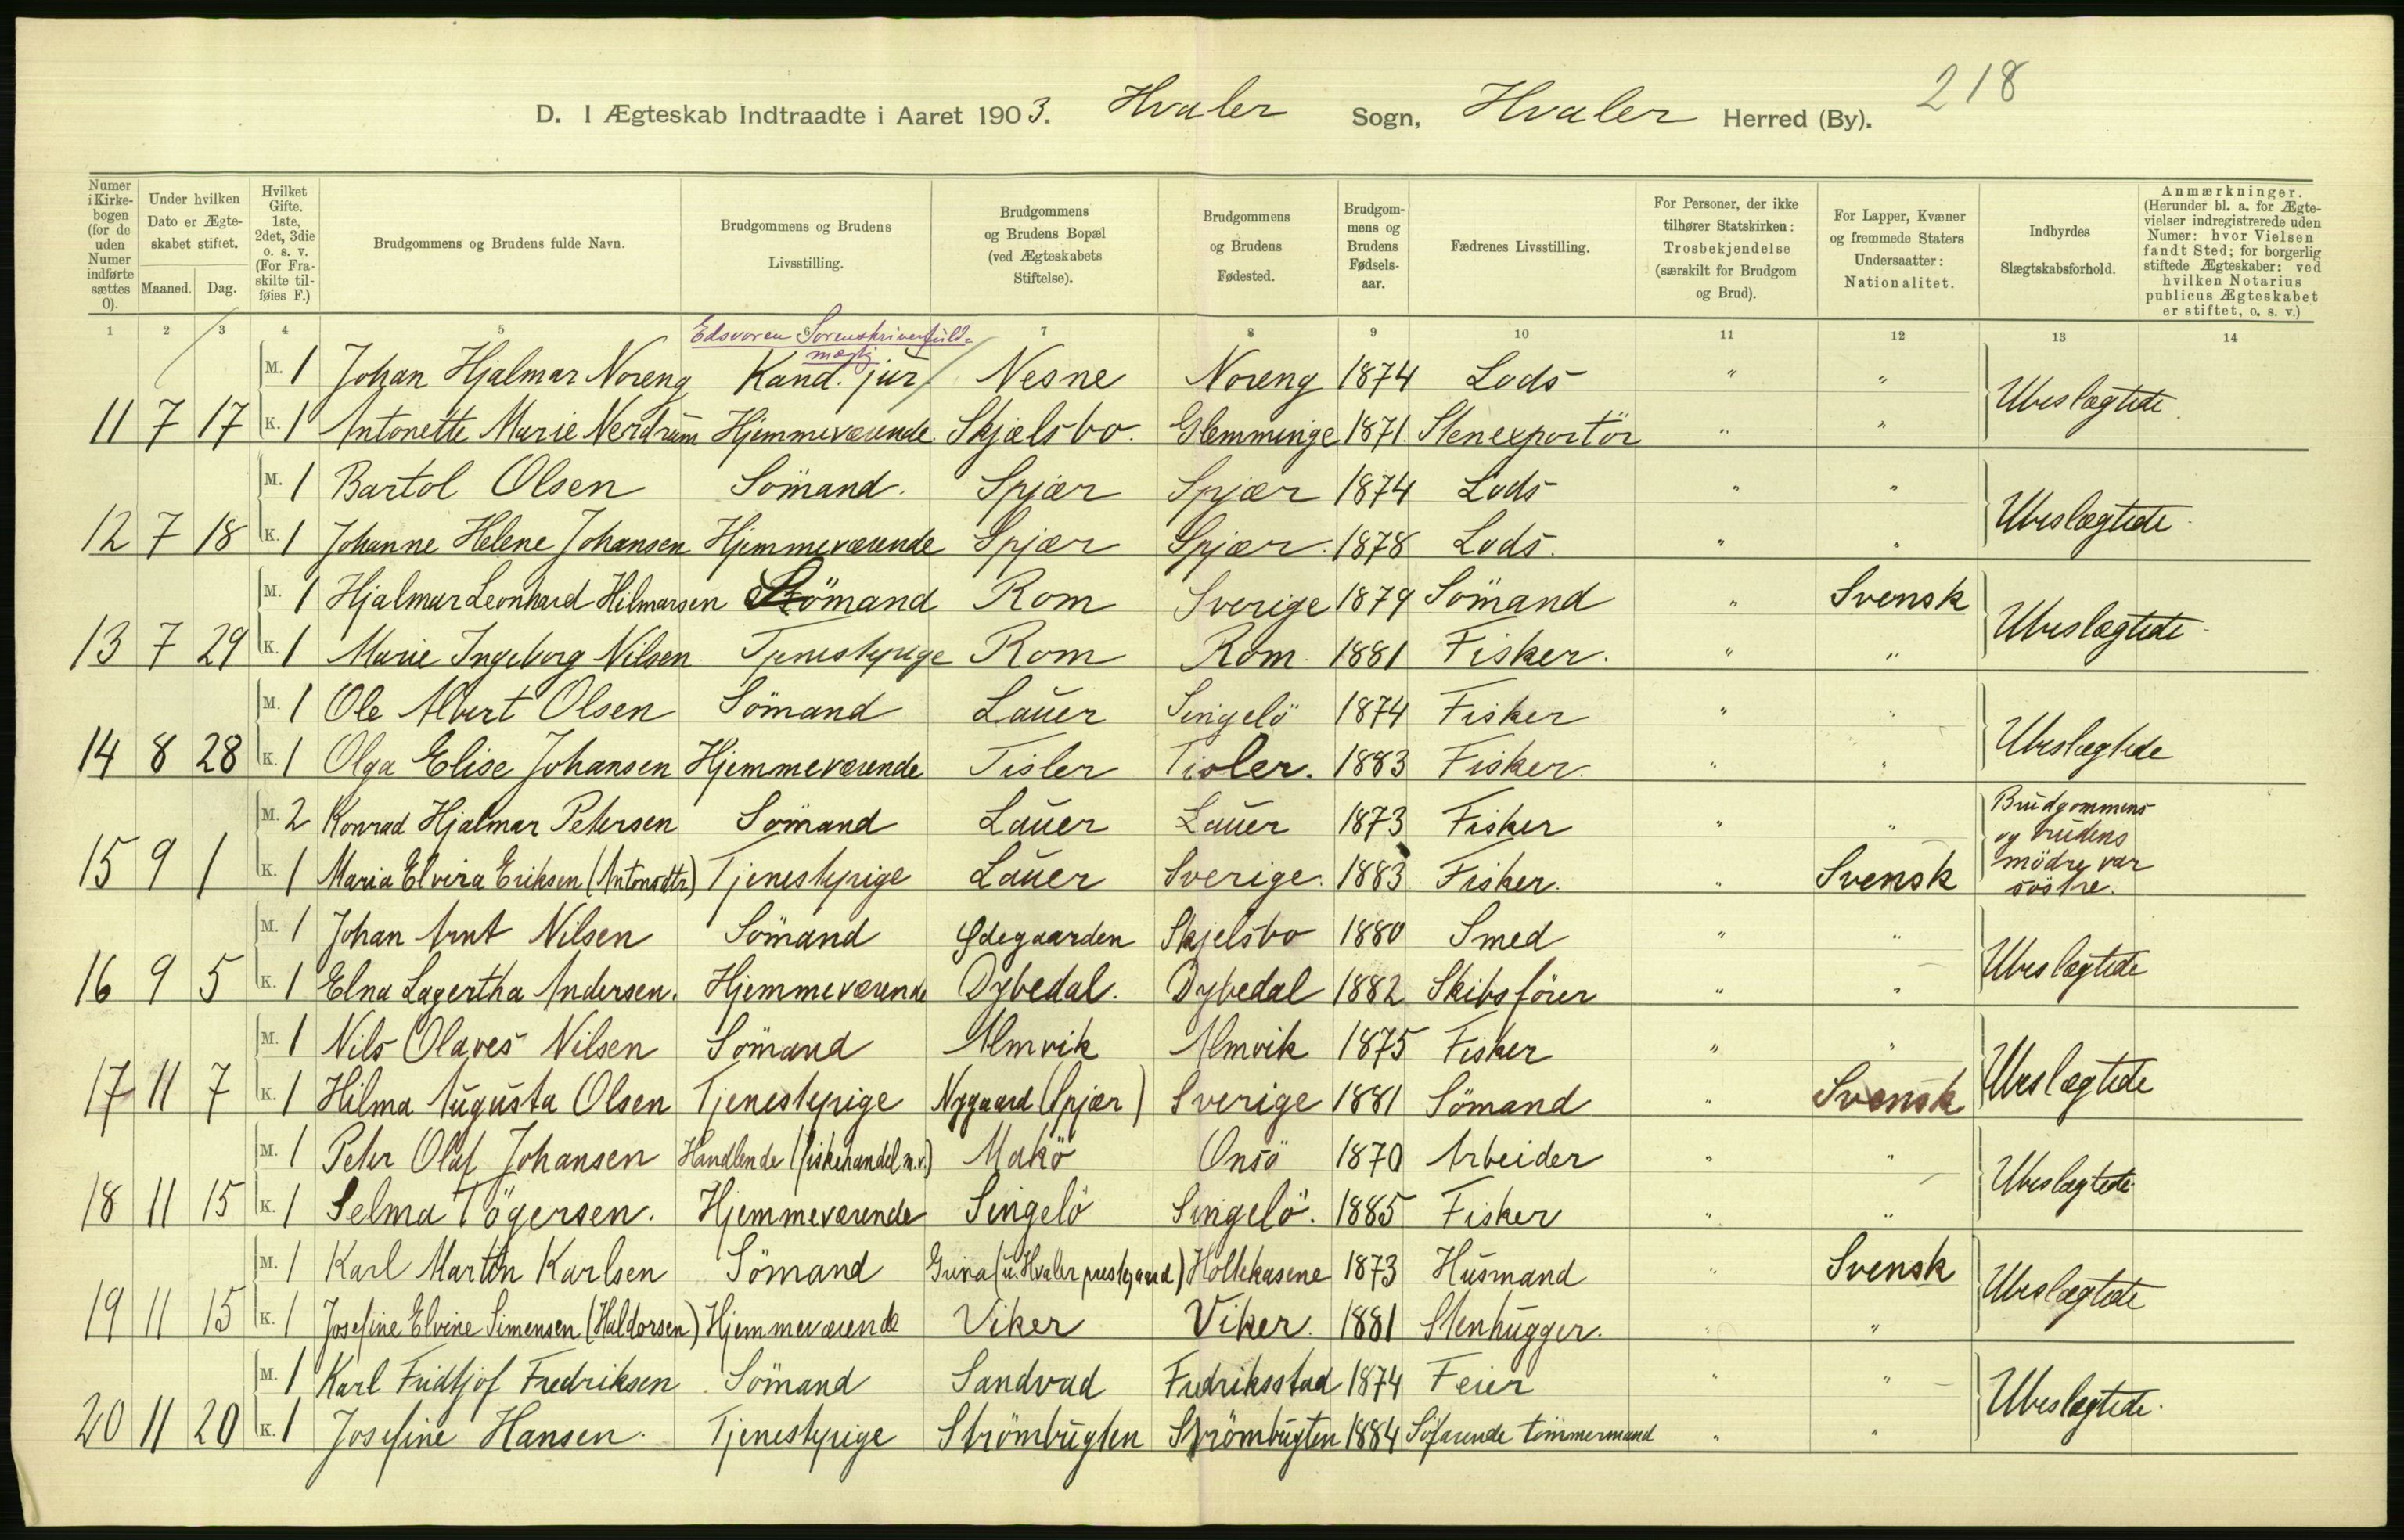 218
D. I Ægteskab Indtraadte i Aaret 1903. Hvaler Sogn, Hvaler Herred (By).
Numer i Kirkebogen (for de uden Numer indførte sættes 0). | Under hvilken Dato er Ægteskabet stiftet. Maaned. Dag. | Hvilket Gifte. 1ste, 2det, 3die o. s. v. (For Fraskilte tilføies F.) | Brudgommens og Brudens fulde Navn. | Brudgommens og Brudens Livsstilling. | Brudgommens og Brudens Bopæl (ved Ægteskabets Stiftelse). | Brudgommens og Brudens Fødested. | Brudgommens og Brudens Fødselsaar. | Fædrenes Livsstilling. | For Personer, der ikke tilhører Statskirken: Trosbekjendelse (særskilt for Brudgom og Brud). | For Lapper, Kvæner og fremmede Staters Undersaatter: Nationalitet. | Indbyrdes Slægtskabsforhold. | Anmærkninger. (Herunder bl. a. for Ægtevielser indregistrerede uden Numer: hvor Vielsen fandt Sted; for borgerlig stiftede Ægteskaber: ved hvilken Notarius publicus Ægteskabet er stiftet, o. s. v.)
1 2 3 4 5 6 7 8 9 10 11 12 13 14
Edsvoren Sorenskriverfuld-
mægtig
M. 1 Johan Hjalmar Noreng Kand. jur Nesne Noreng 1874 Lods " "
Ubeslægtede
11 7 17 K. 1 Antonette Marie Nerdrum Hjemmeværende. Skjælsbo. Glemminge 1871. Stenexportör " "
M. 1 Bartol Olsen Sömand. Spjær Spjær 1874 Lods " "
Ubeslægtede
12 7 18 K. 1 Johanne Helene Johansen Hjemmeværende Spjær Spjær. 1878 Lods. " "
M. 1 Hjalmar Leonhard Hilmarsen Sömand Rom Sverige 1879 Sömand " Svensk
Ubeslægtede
13 7 29 K. 1 Marie Ingeborg Nilsen Tjenestepige Rom Rom. 1881 Fisker. " "
M. 1 Ole Albert Olsen Sömand Lauer Singelö 1874 Fisker " "
Ubeslægtede
14 8 28 K. 1 Olga Elise Johansen Hjemmeværende Tisler Tisler. 1883 Fisker. " "
M. 2 Konrad Hjalmar Petersen Sömand Lauer Lauer 1873 Fisker " " Brudgommens
og brudens
15 9 1 K. 1 Maria Elvira Eriksen (Antonsdtr) Tjenestepige Lauer Sverige. 1883 Fisker. " Svensk mödre var
söstre.
M. 1 Johan Arnt Nilsen Sömand Ødegaarden Skjelsbo 1880 Smed " "
Ubeslægtede
16 9 5 K. 1 Elna Lagertha Andersen. Hjemmeværende Dybedal. Dybedal 1882 Skibsförer " "
M. 1 Nils Olaves Nilsen Sömand Almvik Almvik 1875 Fisker " "
Ubeslægtede
17 11 7 K. 1 Hilma Augusta Olsen Tjenestepige Nygaard (Spjær) Sverige 1881 Sömand " Svensk
M. 1 Peter Olaf Johansen Handlende (fiskehandel m.v.) Makö Onsö 1870 Arbeider " "
Ubeslægtede
18 11 15 K. 1 Selma Tögersen. Hjemmeværende Singelö Singelö. 1885 Fisker " "
M. 1 Karl Martin Karlsen Sömand Grina (u. Hvaler prestegaard) Holtekasene 1873 Husmand " Svensk
Ubeslægtede
19 11 15 K. 1 Josefine Elvine Simensen (Haldorsen) Hjemmeværende Viker Viker. 1881 Stenhugger. " "
M. 1 Karl Fridtjof Fredriksen Sömand Sandvad Fredriksstad 1874 Feier " "
Ubeslægtede.
20 11 20 K. 1 Josefine Hansen. Tjenestepige Strömbugten Strömbugten 1884 Söfarende tömmermand " "